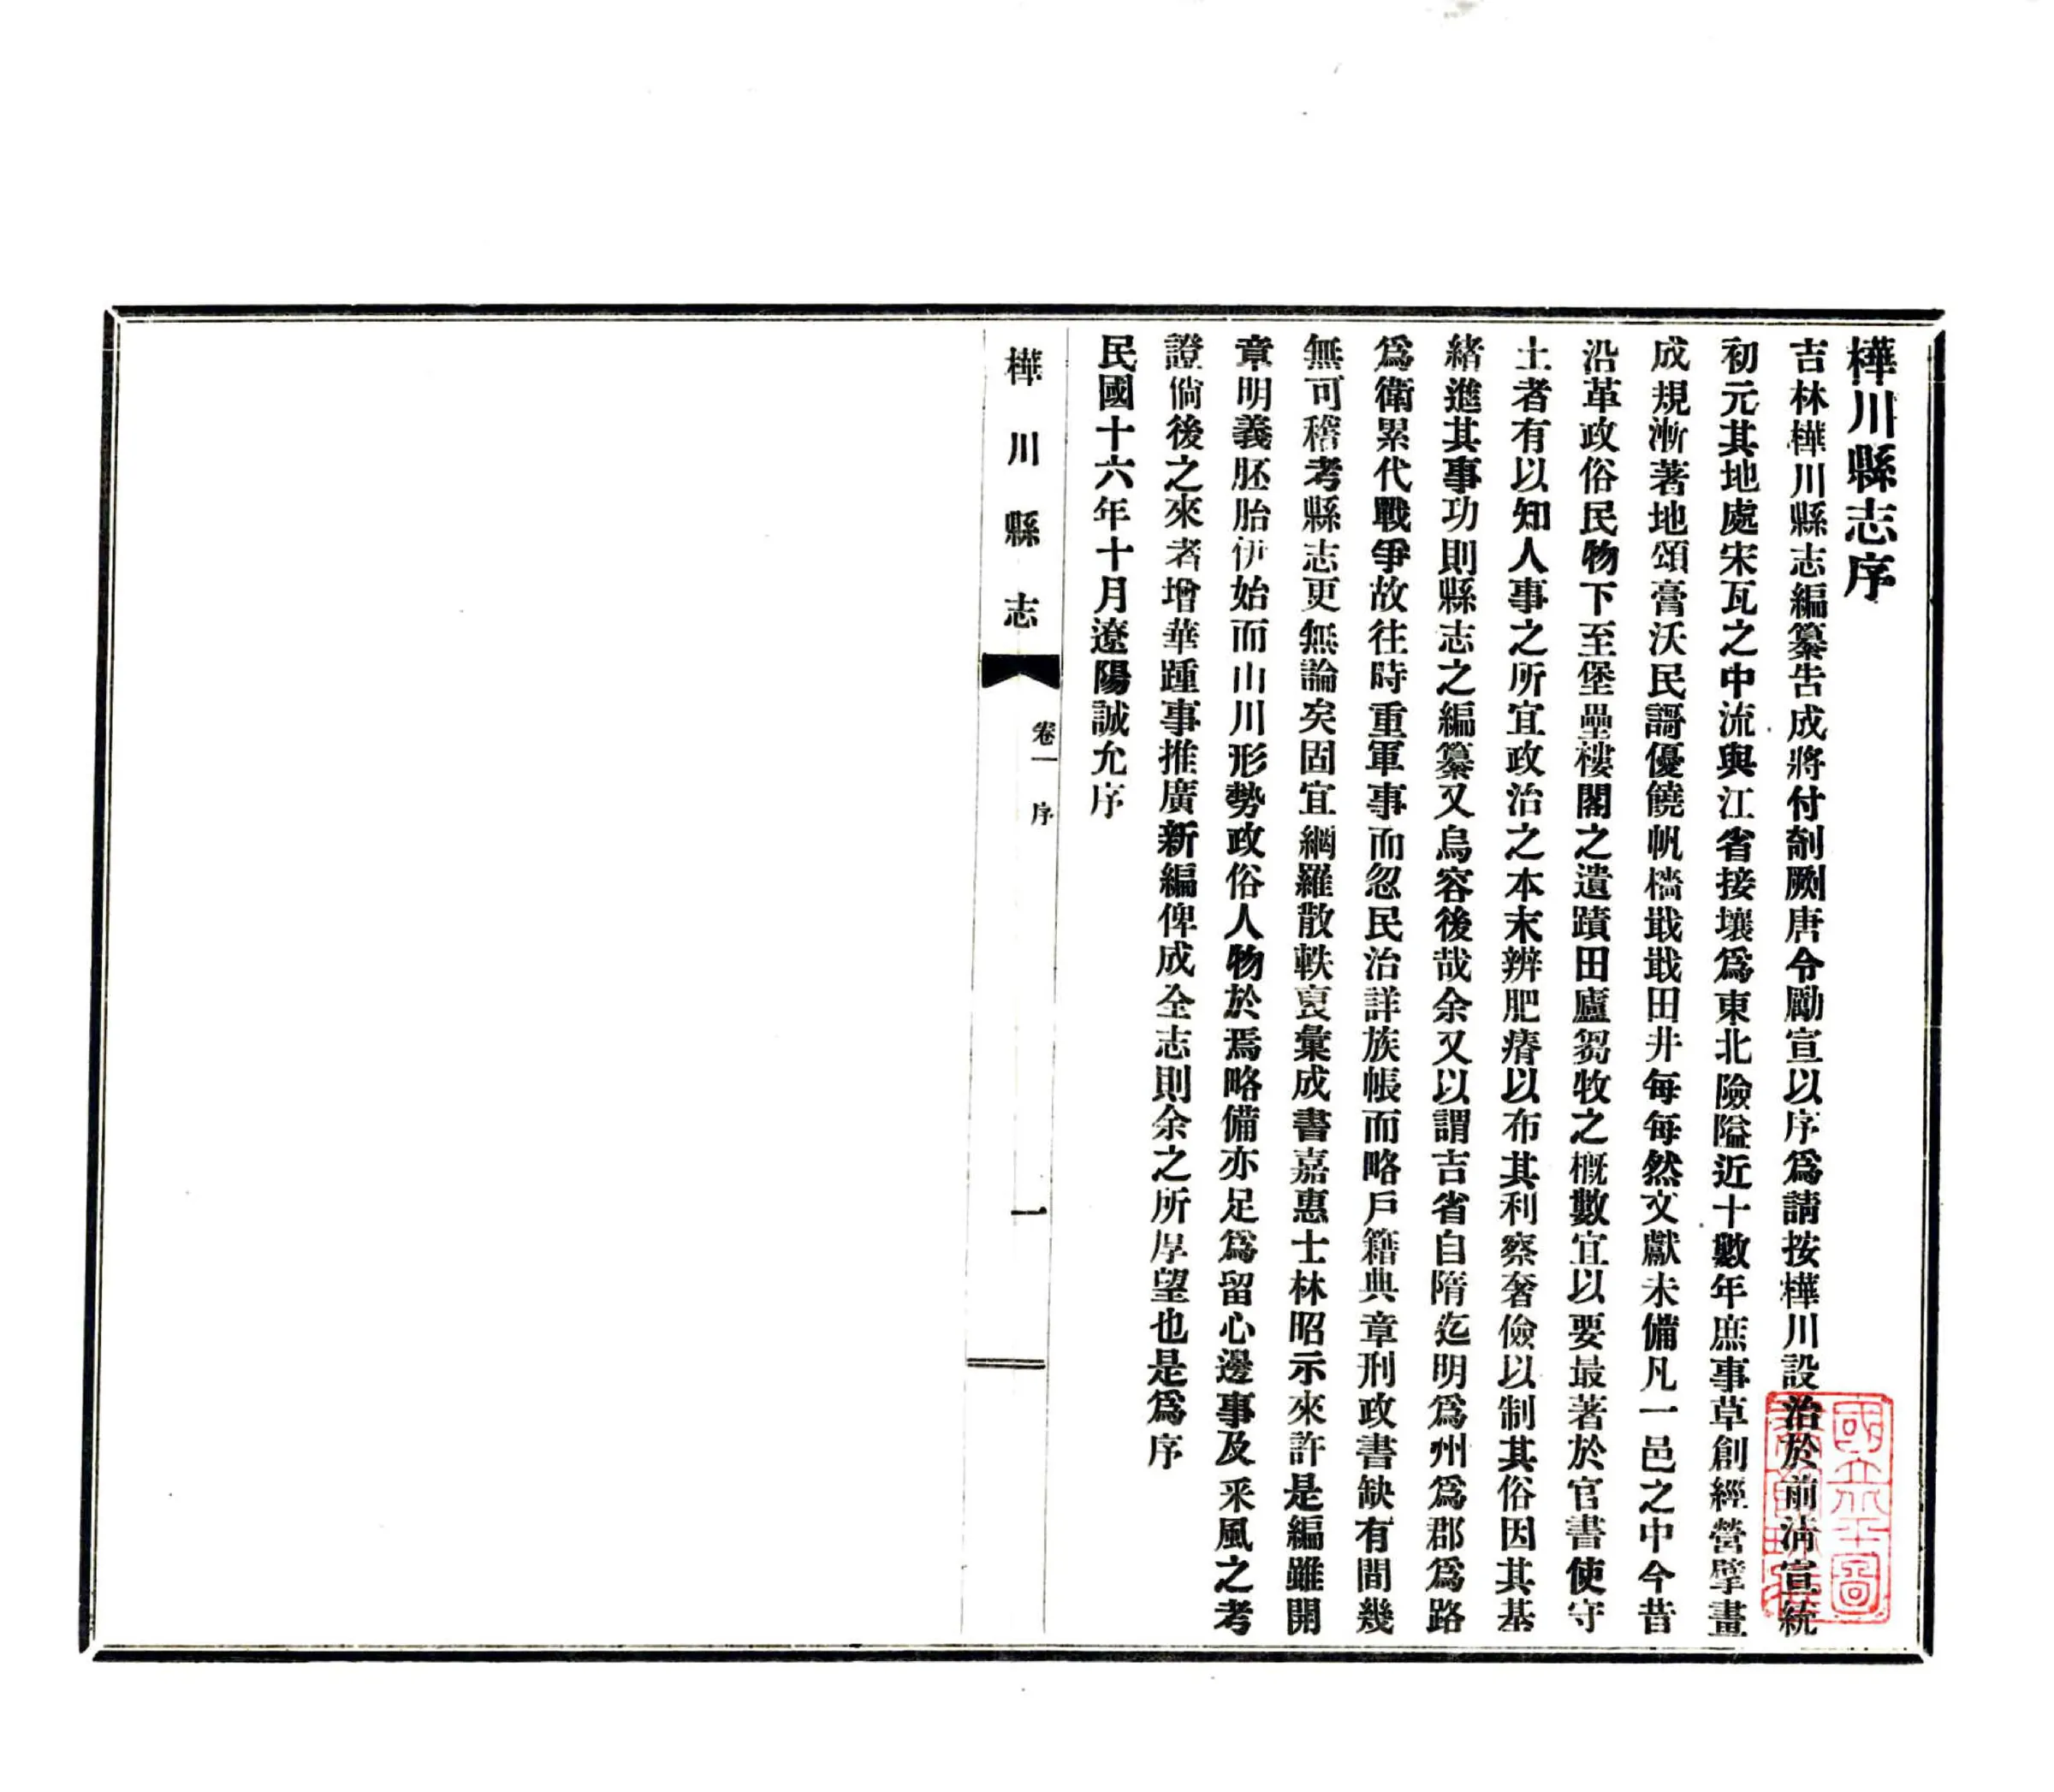 樺川縣志序
吉林樺川縣志編纂告成將付剞劂唐令勵宣以序爲請按樺川設治於前淸宣統
初元其地處宋瓦之中流與江省接壤爲東北險隘近十數年庶事草創經營擘畫
成規漸著地頌膏沃民謌優饒帆檣戢戢田井每每然文獻未備凡一邑之中今昔
沿革政俗民物下至堡壘樓閣之遺蹟田廬芻牧之槪數宜以要最著於官書使守
土者有以知人事之所宜政治之本末辨肥瘠以布其利察奢儉以制其俗因其基
緒進其事功則縣志之編纂又烏容後哉余又以謂吉省自隋迄明爲州爲郡爲路
爲衛累代戰爭故往時重軍事而忽民治詳族帳而略戶籍典章刑政書缺有間幾
無可稽考縣志更無論矣固宜網羅散軼裒彙成書嘉惠士林昭示來許是編雖開
章明義胚胎伊始而山川形勢政俗人物於焉略備亦足爲留心邊事及采風之考
證倘後之來者增華踵事推廣新編俾成全志則余之所厚望也是爲序
民國十六年十月遼陽誠允序
樺川縣志
卷一 序
一
國立北平圖